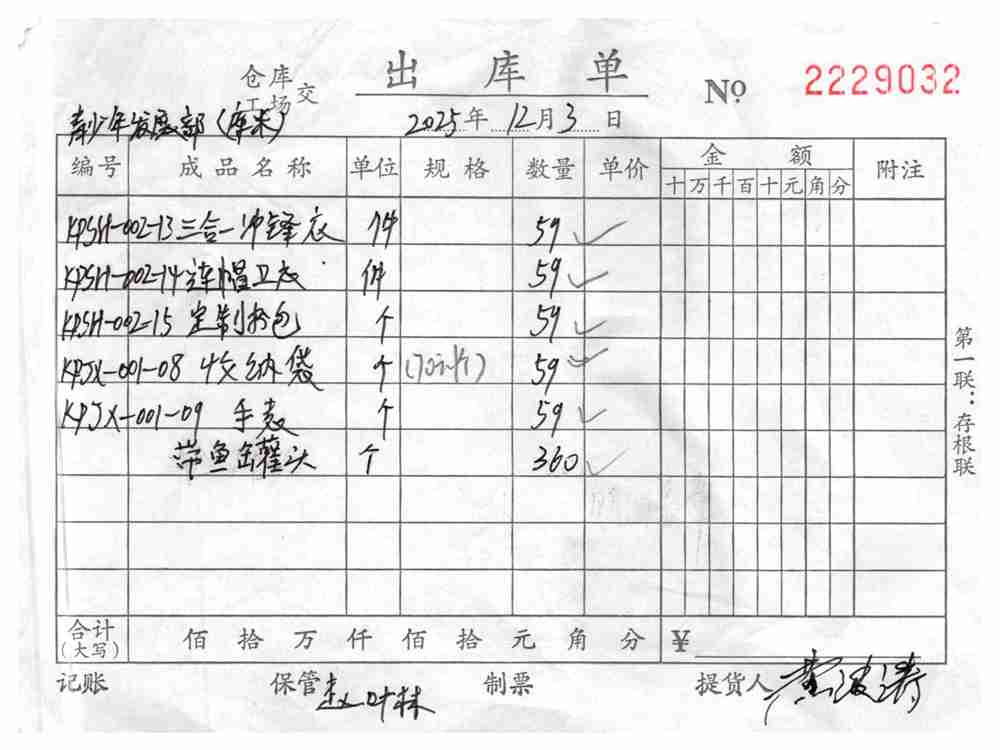 出库单
仓库
工场 交
№ 2229032
青少年发展部(库来) 2025年12月3日
编号 成品名称 单位 规格 数量 单价 金额 附注
十 万 千 百 十 元 角 分
KPSH-002-13 三合一冲锋衣 件 59
KPSH-002-14 连帽卫衣 件 59
KPSH-002-15 定制挎包 个 59
KPJX-001-08 收纳袋 个 59
KPJX-001-09 手表 个 59
带鱼罐头 个 360
第一联：存根联
合计(大写) 佰 拾 万 仟 佰 拾 元 角 分 ¥
记账 保管 赵叶林 制票 提货人